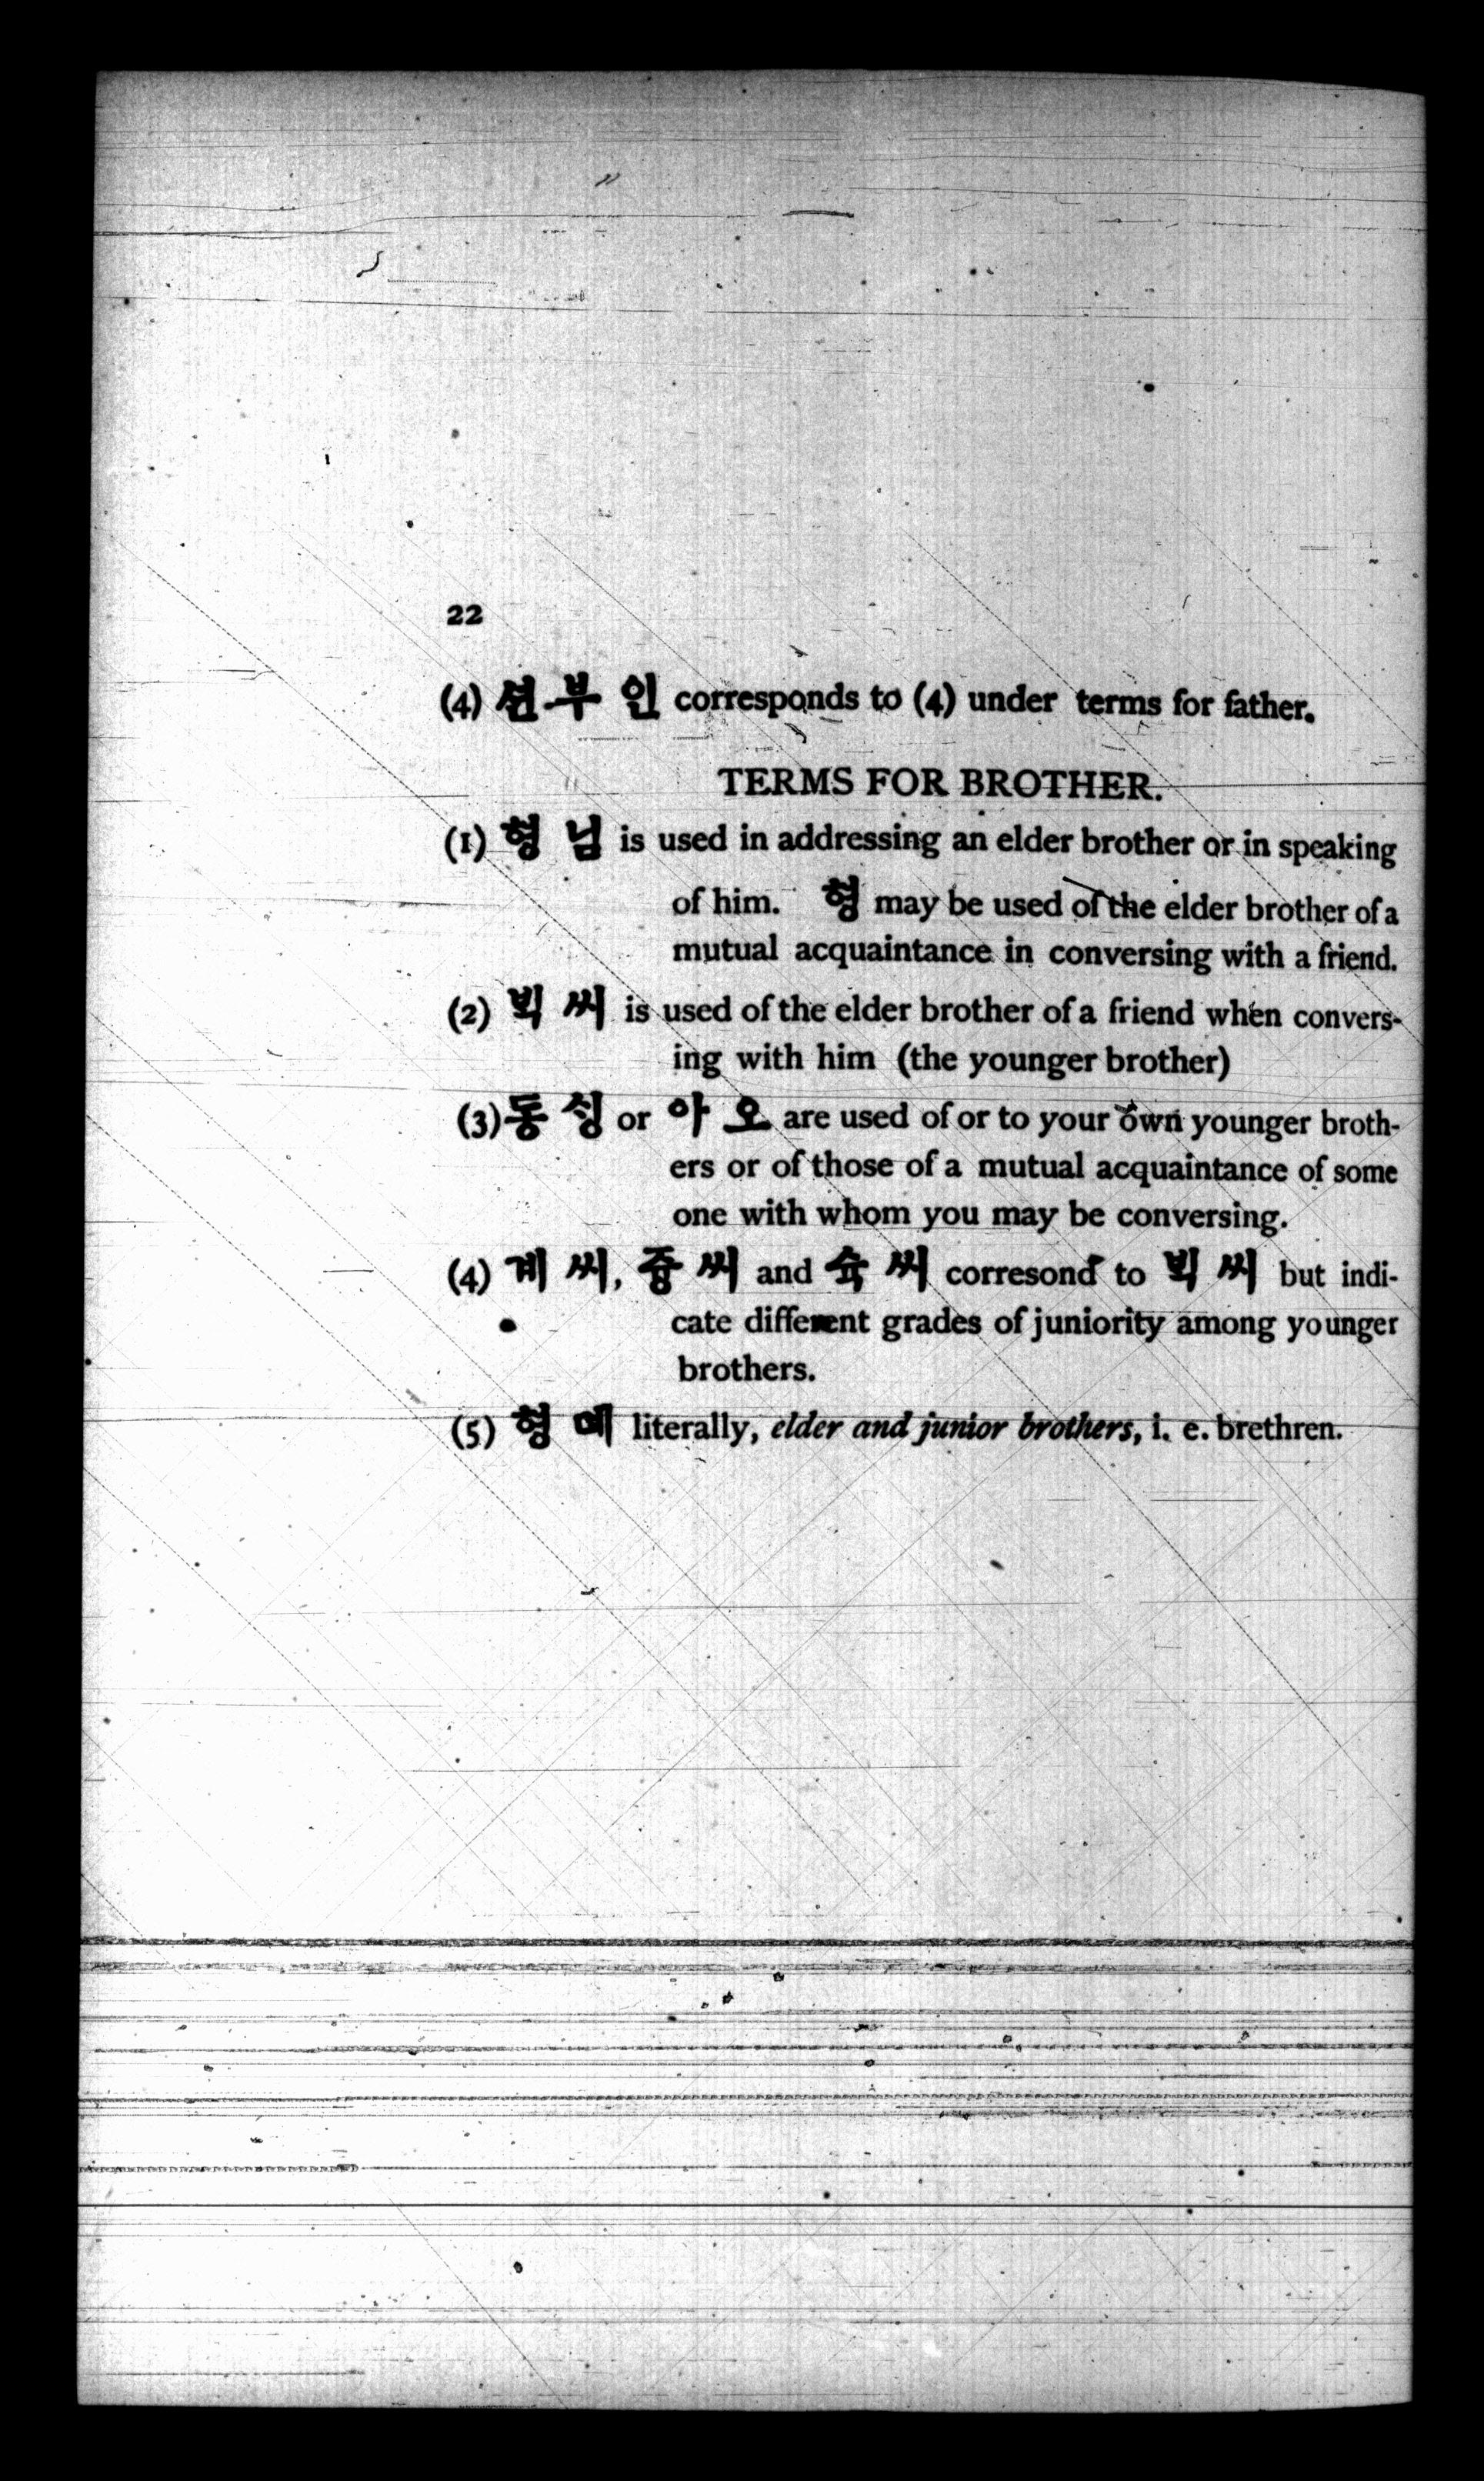 22
(4) 션 부 인 corresponds to (4) under terms for father.
TERMS FOR BROTHER.
(1) 형 님 is used in addressing an elder brother or in speaking
of him. 형 may be used of the elder brother of a
mutual acquaintance in conversing with a friend.
(2) ᄇᆡᆨ 씨 is used of the elder brother of a friend when convers-
ing with him (the younger brother)
(3) 동 ᄉᆡᆼ or 아 오 are used of or to your own younger broth-
ers or of those of a mutual acquaintance of some
one with whom you may be conversing.
(4) 계 씨, 즁 씨 and 슉 씨 corresond to ᄇᆡᆨ 씨 but indi-
cate different grades of juniority among younger
brothers.
(5) 형 뎨 literally, elder and junior brothers, i. e. brethren.